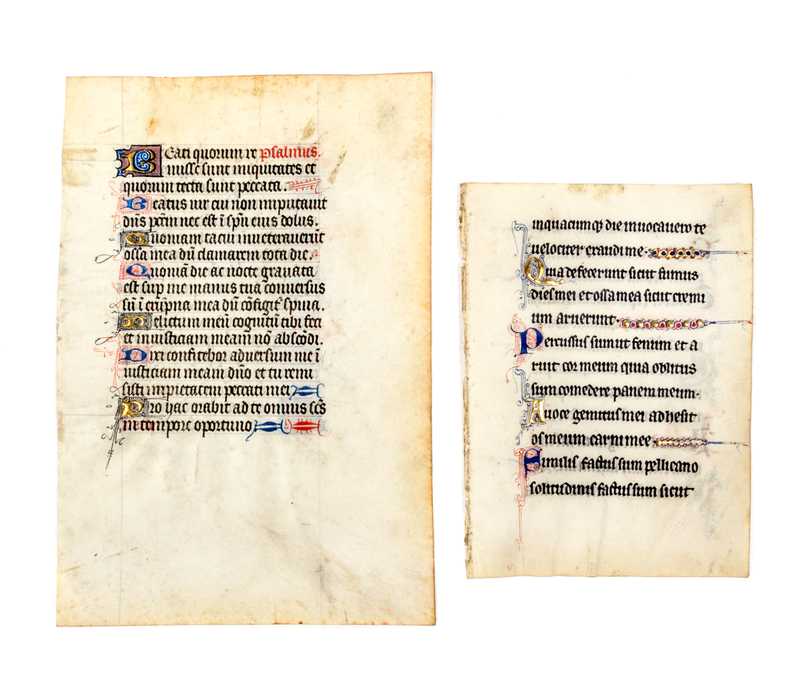 Eati quorum re Psalmus.
misse sunt iniquitates et
quorum tecta sunt peccata.
Beatus vir cui non imputavit
dn̄s pctm̄ nec est ī spū eius dolus.
Quoniam tacui inveteraverūt
ossa mea dū clamarem tota die.
Quoniā die ac nocte gravata
est sup me manus tua cōversus
sū ī erūpna mea dū cōfigit͛ spina.
Delictum meū cognitū tibi feci
et iniusticiam meam nō abscōdi.
Dixi confitebor adversum me ī
iusticiam meam dn̄o et tu remi
sisti impietatem peccati mei
Pro hac orabit ad te omnis scs̄
in tempore oportuno
inquacumq; die invocavero te
velociter exaudi me.
Quia defecerunt sicut fumus
dies mei et ossa mea sicut cremi
um aruerunt.
Percussus sum ut fenum et a
ruit cor meum quia oblitus
sum comedere panem meum.
A voce gemitus mei adhesit
os meum carni mee.
Similis factus sum pellicano
solitudinis factus sum sicut